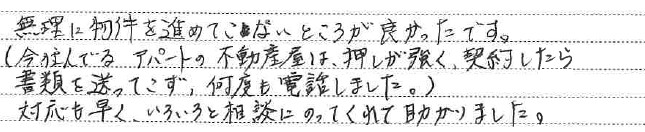 無理に物件を進めてこないところが良かったです。
(今住んでる アパートの不動産屋は、押しが強く、契約したら
書類を送ってこず、何度も電話しました。)
対応も早く、いろいろと相談にのってくれて助かりました。